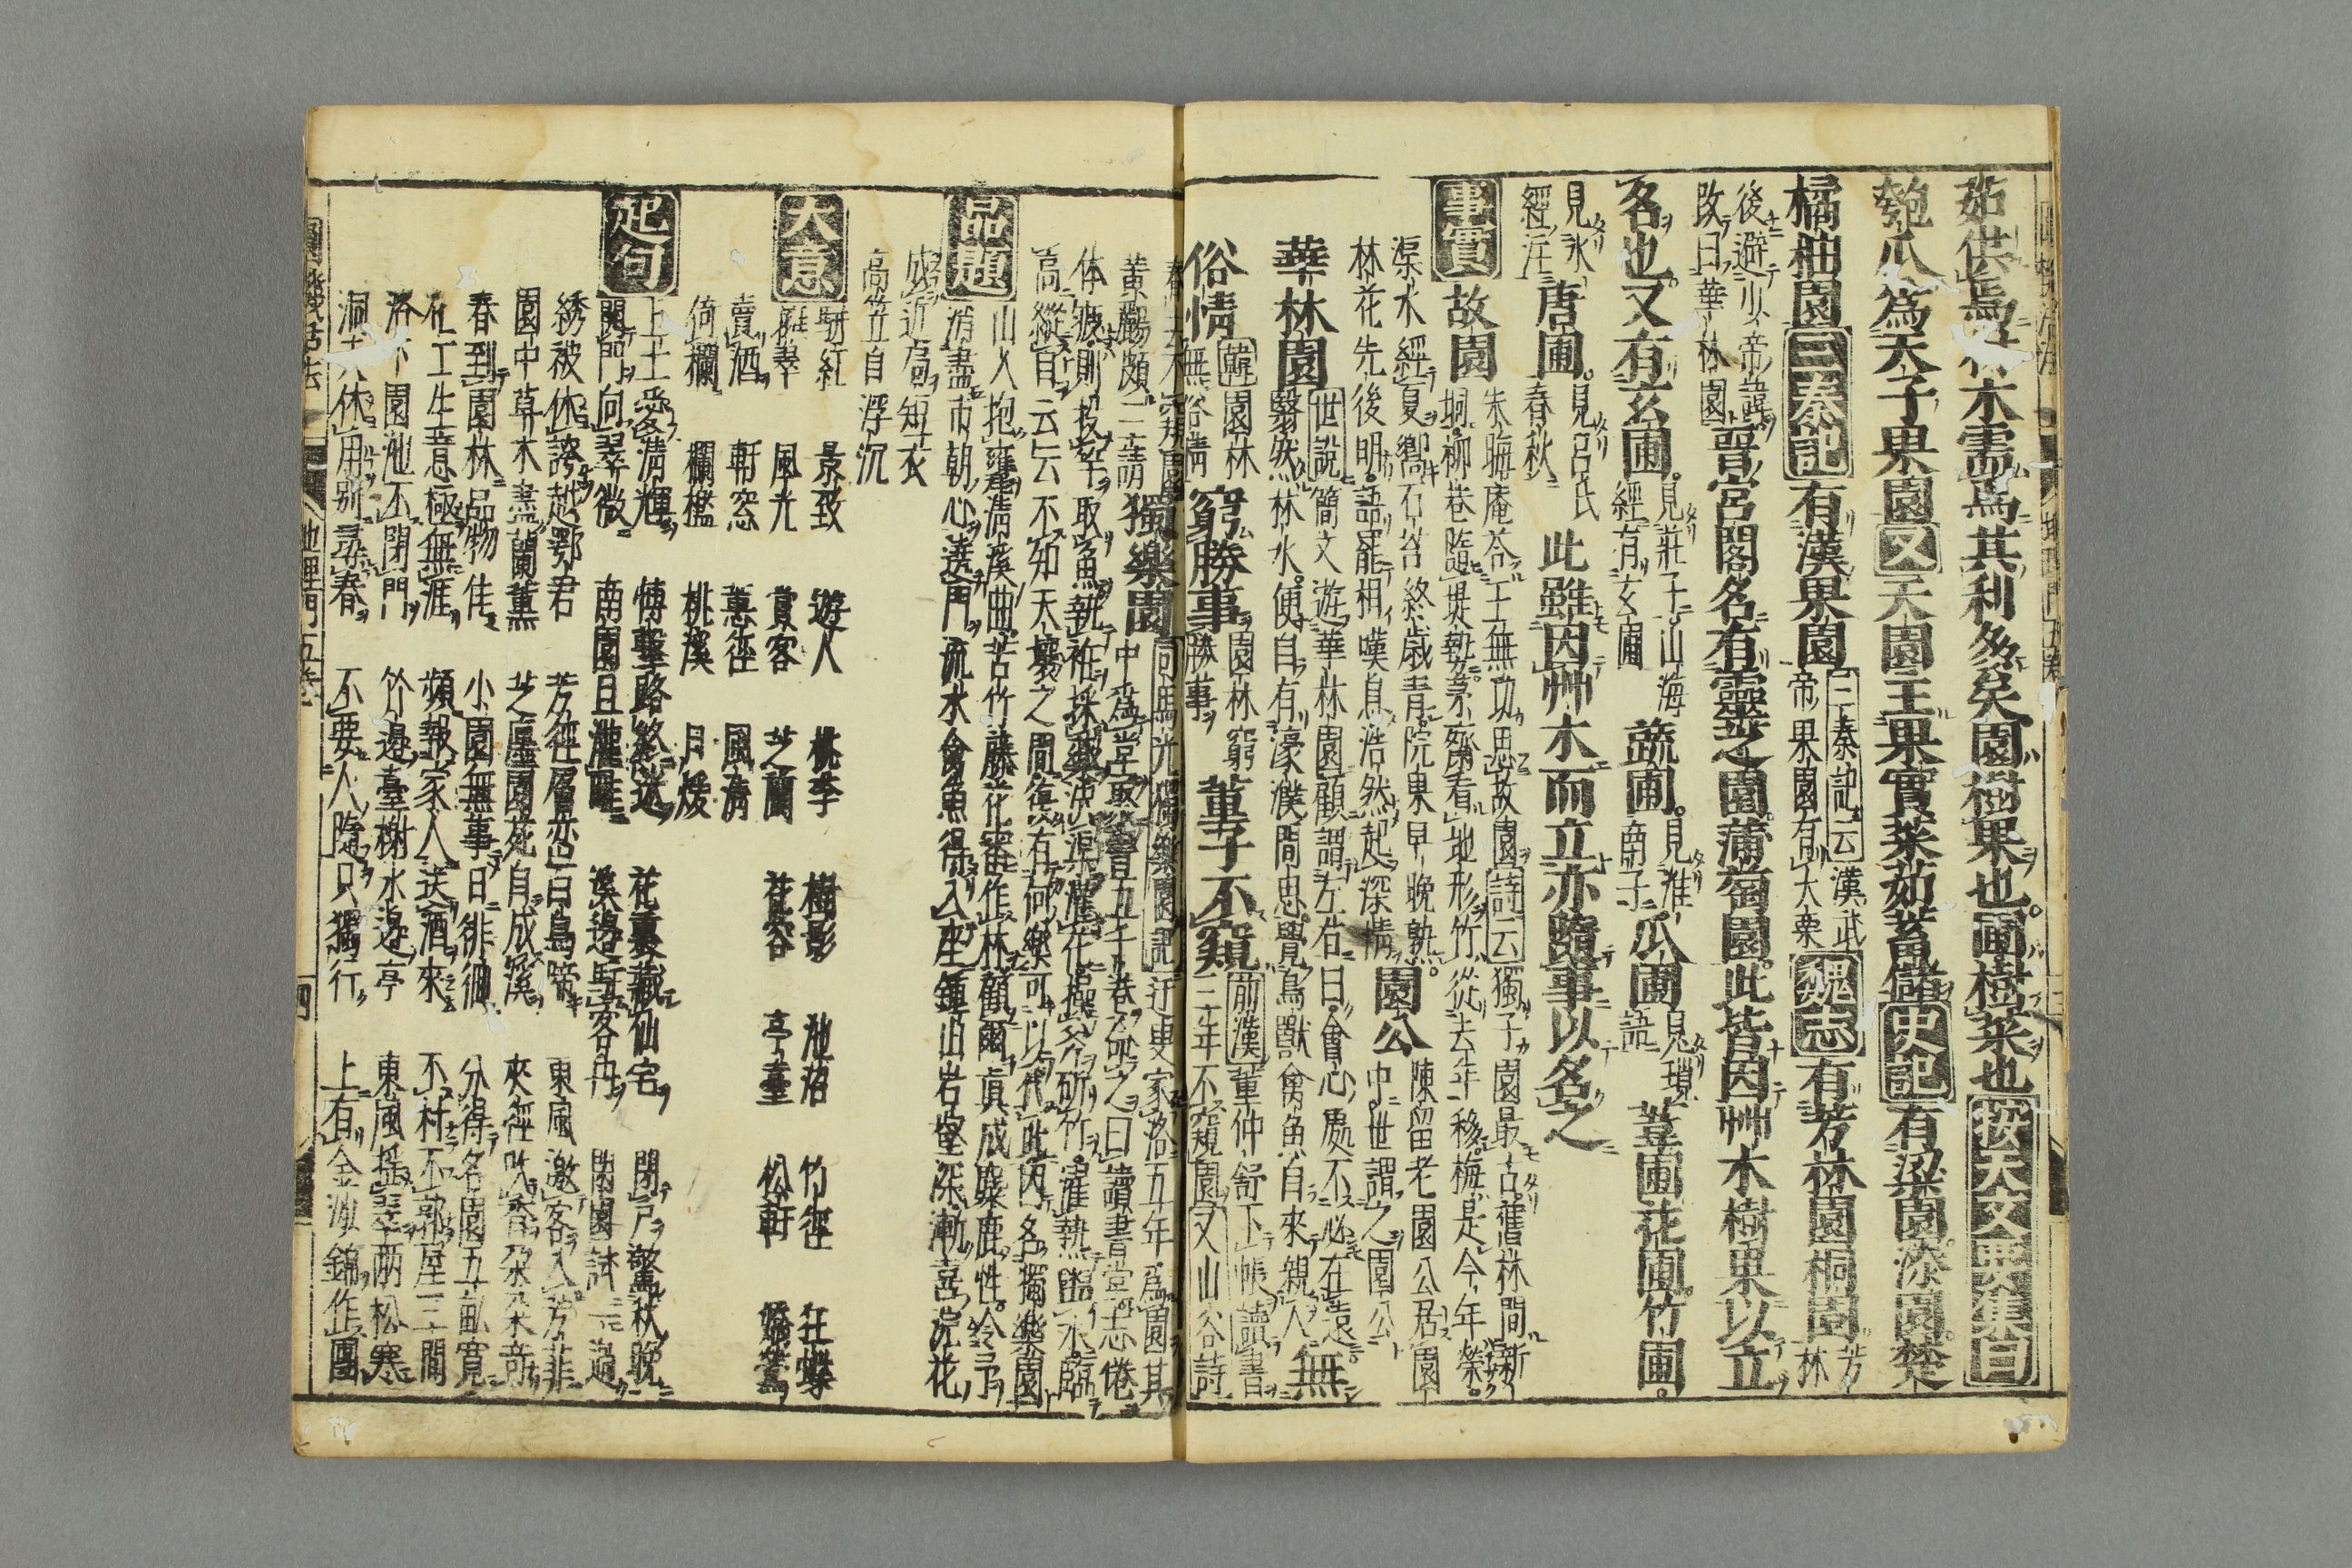 茹供爲材木需爲其利多矣園樹果也圃樹菜也按天文要集曰
匏瓜爲天子果園又天園主果實菜茹蓄儲史記有梁園漆園楚
橘柚園三秦記有漢果園
三秦記云漢武
帝果園有大栗
魏志有芳林園桐園
芳
林
後避少帝諱
改曰華林園
晋宮閣名有靈芝園蒲萄園此皆因艸木樹果以立
名也又有玄圃
見莊子山海
經有玄圃
蔬圃
見淮
南子
瓜圃
見瑣
語
葦圃花圃竹圃
見水
經注
唐圃
見呂氏
春秋
此雖因艸木而立亦隨事以名之
事實
故園
朱晦庵荅王無功思故園詩云獨子園最古舊林間新
垌柳巷隨堤埶茅齋看地形竹從去年移梅是今年榮
渠水經夏嚮石苔終歲青院果早晚熟
林花先後明語罷相嘆息浩然起深情
園公
陳留老園公居園
中世謂之園公
華林園
世說簡文遊華林園顧謂左右曰會心處不必在遠
翳然林水便自有濠濮間思覺鳥獸禽魚自來親人
無
俗情
韓園林
無俗情
窮勝事
園林窮
勝事
董子不窺
前漢董仲舒下帷讀書
三年不窺園又山谷詩
春去不窺園
黃鸝頗三請
獨樂園
司馬光獨樂園記迂叟家洛五年爲園其
中爲堂聚書五千卷命之曰讀書堂志倦
体疲則投竿取魚執衽採藥決渠灌花操斧斫竹濯熱盥水臨
高縱目云云不知天壤之間復有何樂可以代此因名獨樂園
品題
山人抱甕淸溪曲苦竹藤花密作林顧爾眞成麋鹿性令予
消盡市朝心遶門流水禽魚得入座鍾山岩壑深漸喜浣花
成近局短衣
高笠自浮沉
大意
騎紅　景致　遊人　桃李　樹影　池沼　竹徑　狂蝶
推翠　風光　賞客　芝蘭　花容　亭臺　松軒　嬌鶯
賣酒　軒窓　蕙徑　風淸
倚欄　欄檻　桃溪　月煖
起句
上士愛淸輝　搏擊路終迷　花裏藏仙宅　閉戶驚秋晚
開門向翠微　南園且灌畦　溪邊駐客舟　閑園試一過
綉被休誇越鄂君　芳徑層巒百鳥啼　東風邀客入芳菲
園中草木盡蘭薰　芝廛園苑自成溪　夾徑吹香朶朶奇
春到園林品物佳　小園無事日徘徊　分得名園五畝寬
化工生意極無涯　頻報家人送酒來　不村不郭屋三間
洛下園池不閉門　竹邊臺榭水邊亭　東風搖翠兩松寒
洞天休用別尋春　不要人隨只獨行　上有金淵錦作團
地理門五卷
四